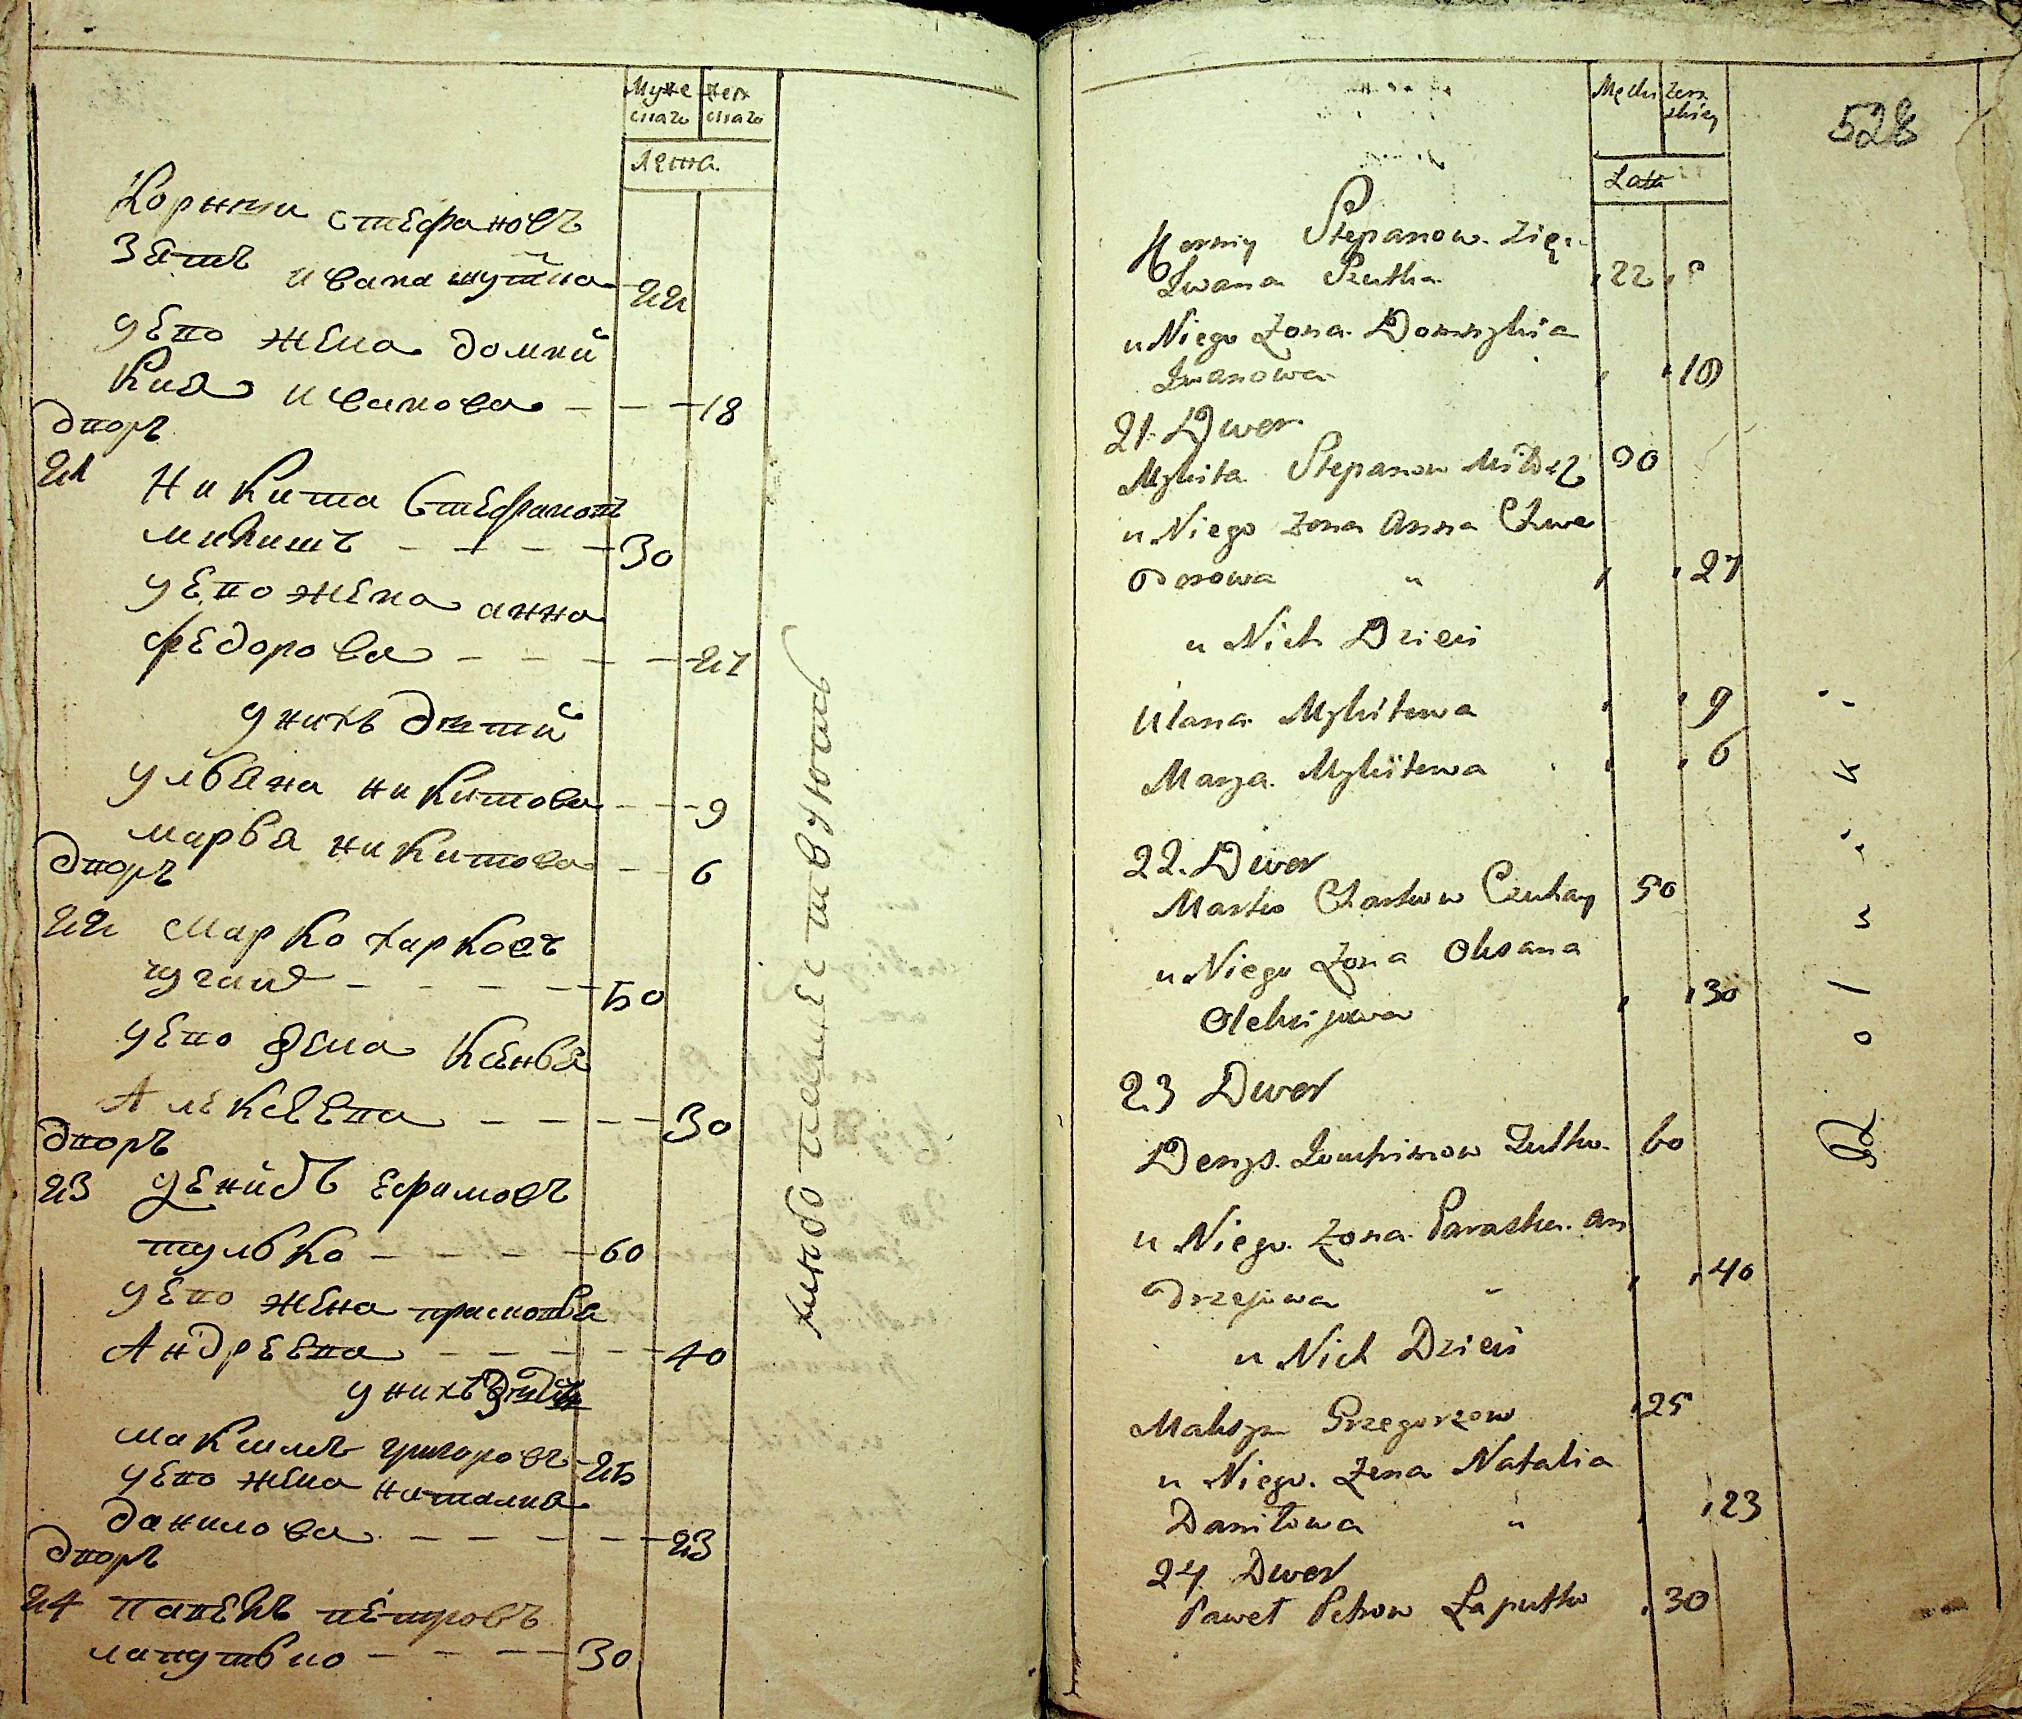 Муже Женс
скаго скаго
Лета
Корнии Стефановъ
Зять Ивана шутка 22
у єво жена домни
кия иванова 18
дворъ
21 Никита Стефановъ
микитъ 30
у єво жена анна
федорова 27
у нихъ дети
ульяна никитова 9
марья никитова 6
дворъ
22 Марко харковъ
чугай 50
у єво жена Ксенья
Алексеева 30
дворъ
23 денисъ ефимовъ
тулько 60
у єво жена прасковья
Андреева 40
у нихъ дети
максимъ григоровъ 25
у єво жена наталия
данилова 23
дворъ
24 павелъ петровъ
лапутько 30
528
Męski Żens
skiey
Lata
Korniy Stepanow. Zięć
Iwana Szutka 22
u Niego Żona Domnykia
Iwanowa 18
21. Dwor
Mykita Stepanow 30
u Niego Żona Anna Chwe
dorowa 27
u Nich Dzieci
Ulana Mykitowa 9
Marya Mykitowa 6
22. Dwor
Marko Charkow Czuhay 50
u Niego Żona Oksana
Oleksijowa 30
23 Dwor
Denys. Iouchimow Tulko. 60
u Niego Żona Paraska. An
drzejowa 40
u Nich Dzieci
Maksym Grzegorzow 25
u Niego. Żena Natalia
Daniłowa 23
24 Dwor
Paweł Petrow Łaputko 30